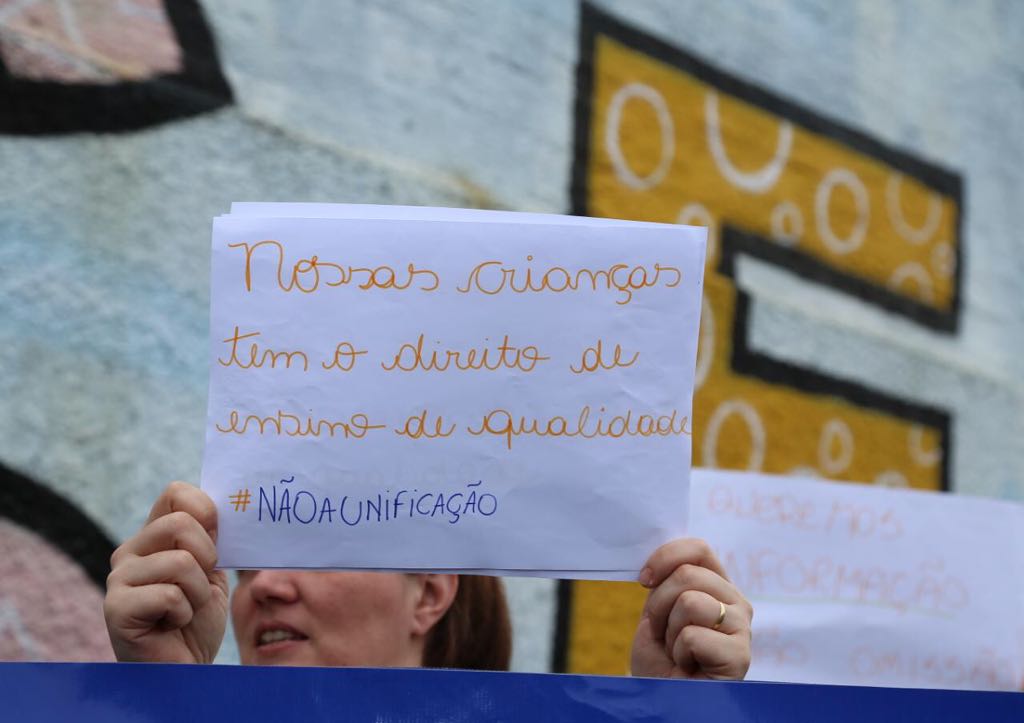 Nossas crianças
tem o direito de
ensino de qualidade
#NÃOAUNIFICAÇÃO
QUEREMOS
INFORMAÇÃO
NÃO OMISSÃO